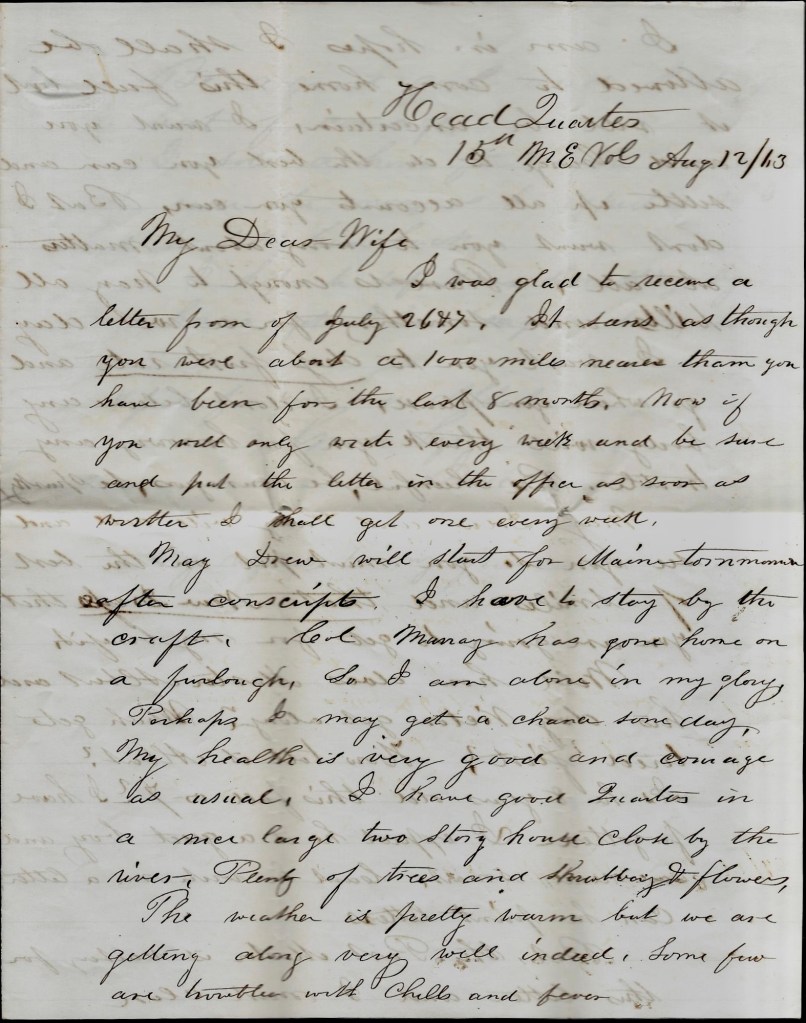 Head Quarters
15th ME Vols Aug 12/63
My Dear Wife
I was glad to receive a
letter from of July 26th. It seems as though
you were about a 1000 miles nearer tham you
have been for the last 8 months. Now if
you will only write every week and be sure
and put the letter in the office as soon as
written I shall get one every week.
May Drew will start for Maine
after conscripts. I have to stay by the
craft. Col Murray has gone home on
a furlough, So I am alone in my glory,
Perhaps I may get a chance some day,
My health is very good and courage
as usual. I have good Quarters in
a nice large two story house close by the
river, Plenty of trees and shrubbery & flowers,
The weather is pretty warm but we are
getting along very well indeed, Some few
are troubled with Chills and fever